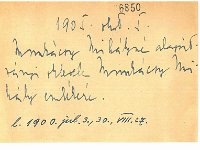 6850
1905. okt. 5.
Munkácsy Mihályné alapít-
ványi okirat Munkácsy Mi-
hály emlékére.
l. 1900. jul. 3., 30. VIII. 27.